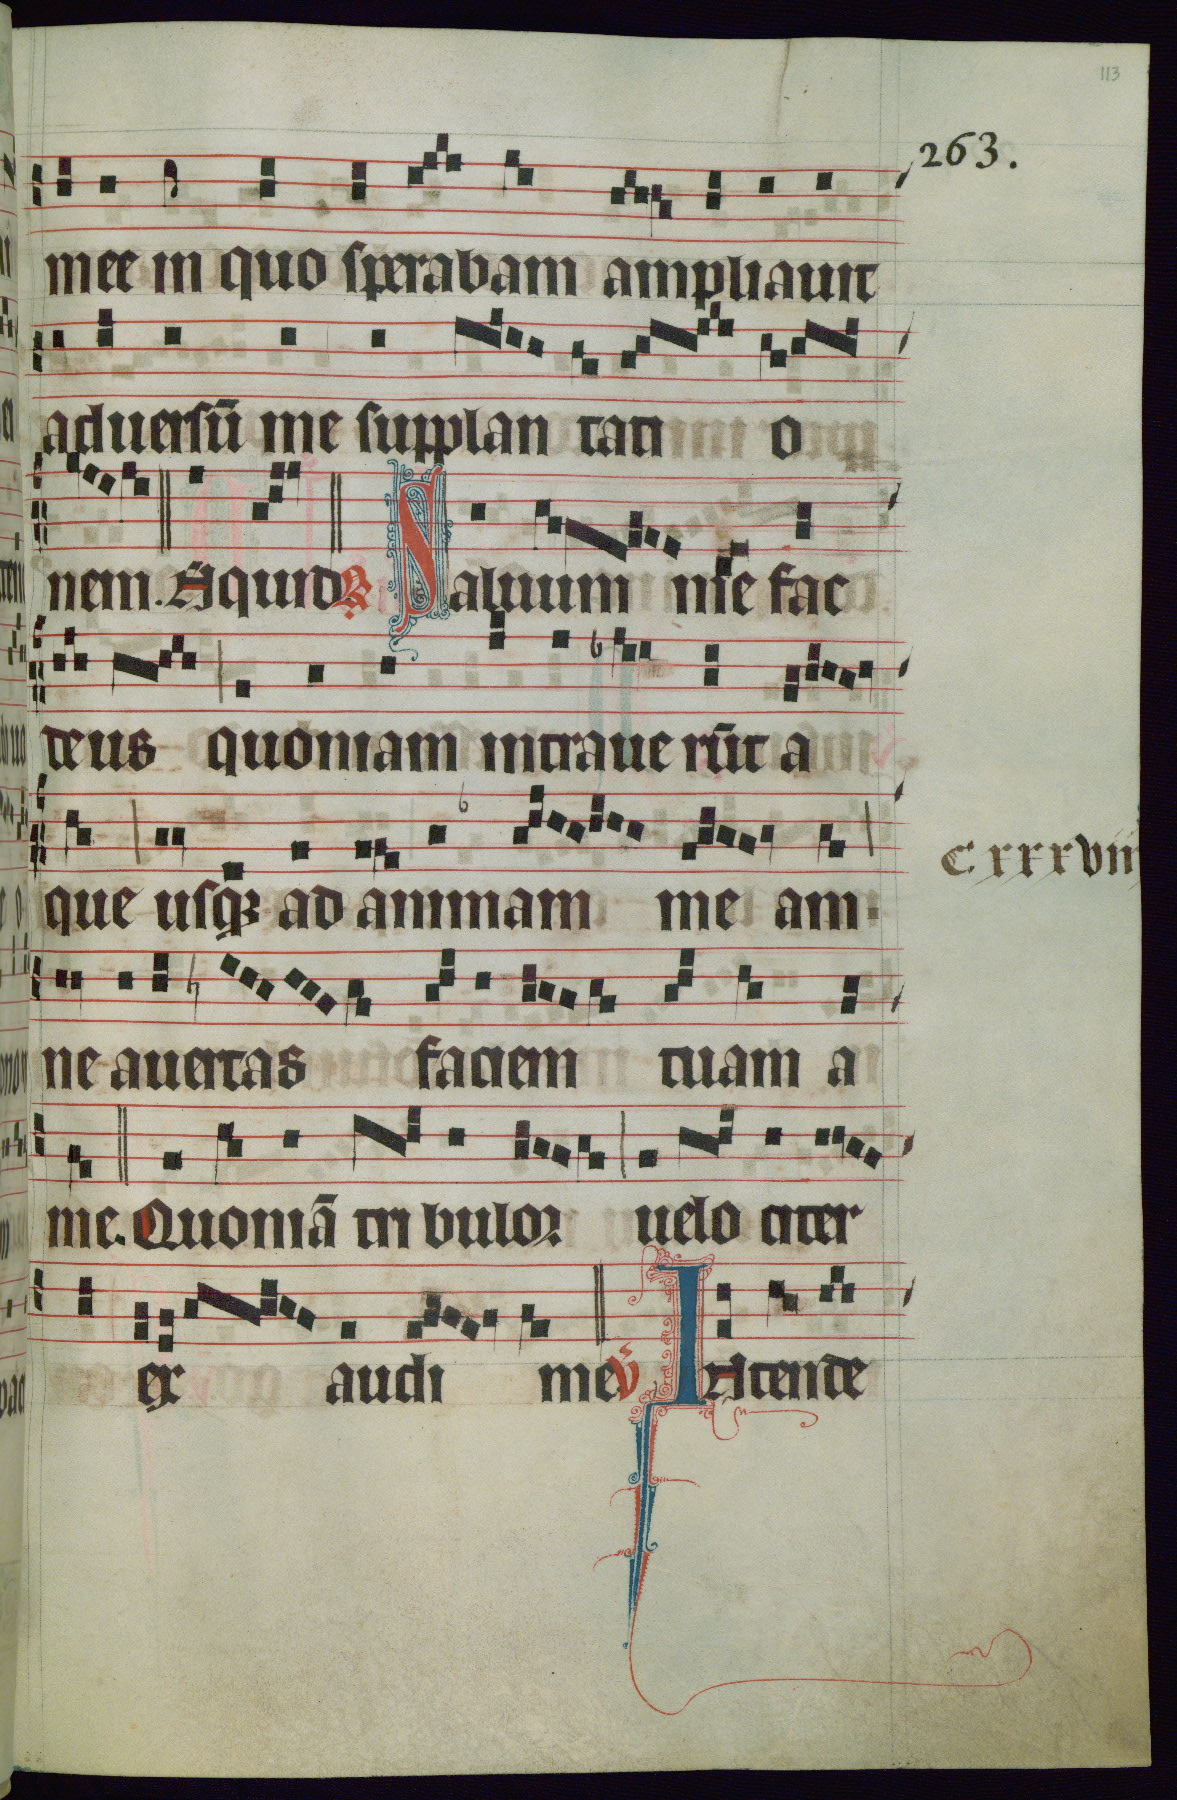 113
263.
mee in quo sperabam ampliauit
aduersū me supplan tati o
nem. A quid R Saluum me fac
deus quoniam intraue rūt a
que usqꝫ ad animam me am
cxxxviii
ne auertas faciem tuam a
me. Quoniā tri bulor uelo citer
ex audi me V̄ Intende